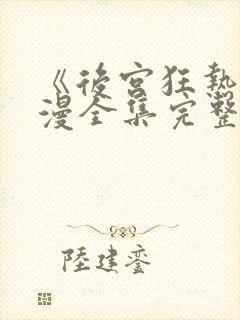 《後宮狂熱
漫全集完整
陸建鑾